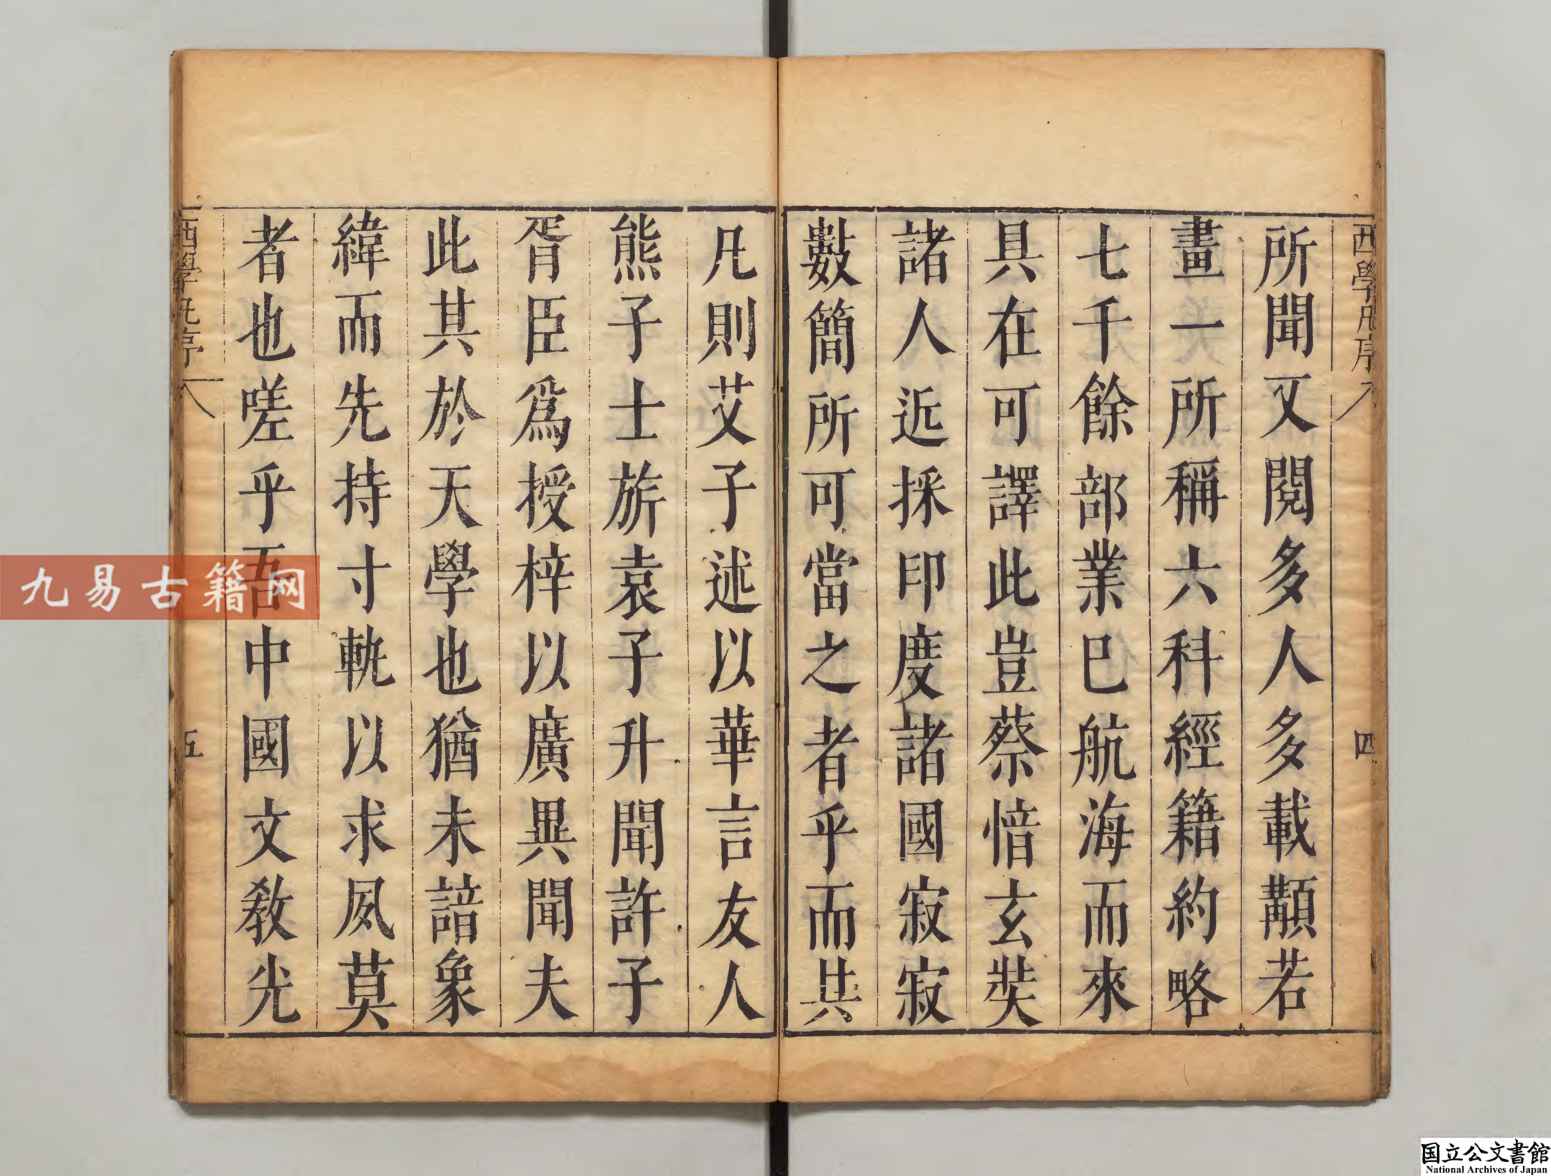 西學凡序
四
所聞又閱多人多載顜若
畫一所稱六科經籍約略
七千餘部業巳航海而來
具在可譯此豈蔡愔玄奘
諸人近採印度諸國寂寂
數簡所可當之者乎而共
凡則艾子述以華言友人
熊子士旂袁子升聞許子
胥臣爲授梓以廣異聞夫
此其於天學也猶未諳象
緯而先持寸軌以求夙莫
者也嗟乎吾中國文敎光
西學凡序
五
九易古籍网
国立公文書館
National Archives of Japan